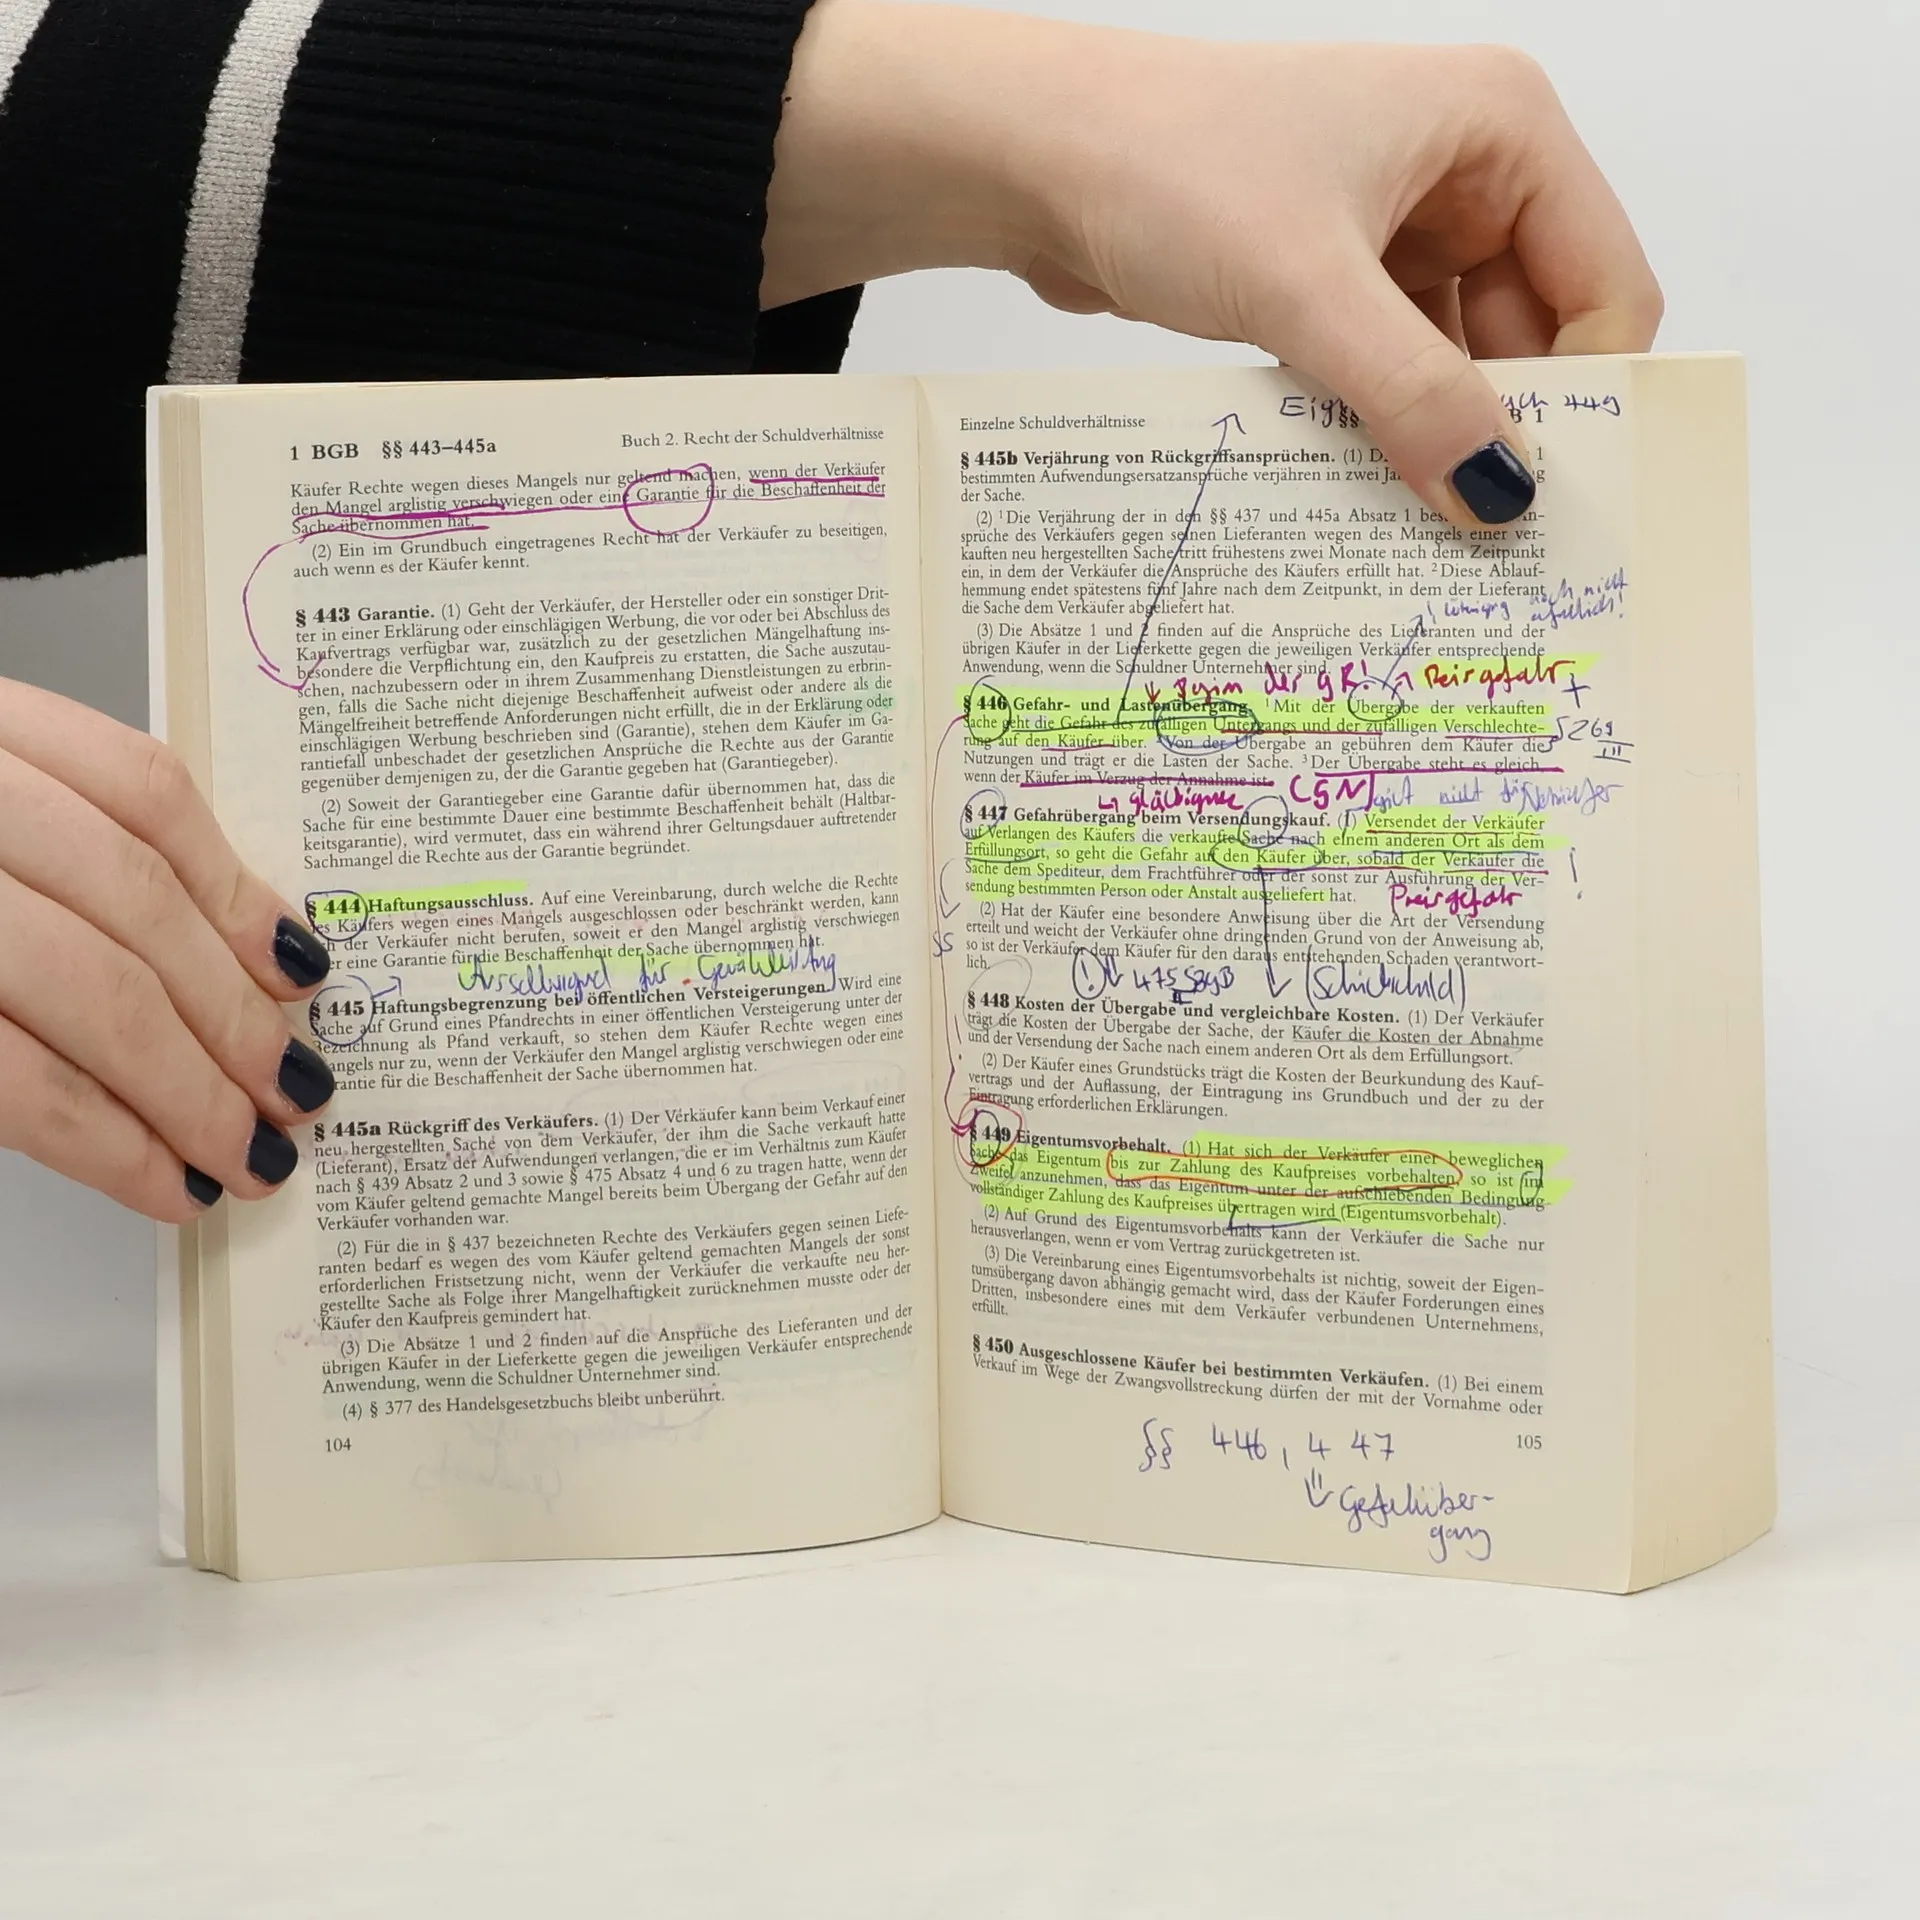 1 BGB §§ 443–445a
Buch 2. Recht der Schuldverhältnisse
Käufer Rechte wegen dieses Mangels nur geltend machen, wenn der Verkäufer
den Mangel arglistig verschwiegen oder eine Garantie für die Beschaffenheit der
Sache übernommen hat.
(2) Ein im Grundbuch eingetragenes Recht hat der Verkäufer zu beseitigen,
auch wenn es der Käufer kennt.
§ 443 Garantie. (1) Geht der Verkäufer, der Hersteller oder ein sonstiger Drit-
ter in einer Erklärung oder einschlägigen Werbung, die vor oder bei Abschluss des
Kaufvertrags verfügbar war, zusätzlich zu der gesetzlichen Mängelhaftung ins-
besondere die Verpflichtung ein, den Kaufpreis zu erstatten, die Sache auszutau-
schen, nachzubessern oder in ihrem Zusammenhang Dienstleistungen zu erbrin-
gen, falls die Sache nicht diejenige Beschaffenheit aufweist oder andere als die
Mängelfreiheit betreffende Anforderungen nicht erfüllt, die in der Erklärung oder
einschlägigen Werbung beschrieben sind (Garantie), stehen dem Käufer im Ga-
rantiefall unbeschadet der gesetzlichen Ansprüche die Rechte aus der Garantie
gegenüber demjenigen zu, der die Garantie gegeben hat (Garantiegeber).
(2) Soweit der Garantiegeber eine Garantie dafür übernommen hat, dass die
Sache für eine bestimmte Dauer eine bestimmte Beschaffenheit behält (Haltbar-
keitsgarantie), wird vermutet, dass ein während ihrer Geltungsdauer auftretender
Sachmangel die Rechte aus der Garantie begründet.
§ 444 Haftungsausschluss. Auf eine Vereinbarung, durch welche die Rechte
des Käufers wegen eines Mangels ausgeschlossen oder beschränkt werden, kann
der Verkäufer nicht berufen, soweit er den Mangel arglistig verschwiegen
eine Garantie für die Beschaffenheit der Sache übernommen hat.
für Gewährleistung
§ 445 Haftungsbegrenzung bei öffentlichen Versteigerungen. Wird eine
Sache auf Grund eines Pfandrechts in einer öffentlichen Versteigerung unter der
Bezeichnung als Pfand verkauft, so stehen dem Käufer Rechte wegen eines
angels nur zu, wenn der Verkäufer den Mangel arglistig verschwiegen oder eine
rantie für die Beschaffenheit der Sache übernommen hat.
§ 445a Rückgriff des Verkäufers. (1) Der Verkäufer kann beim Verkauf einer
neu hergestellten Sache von dem Verkäufer, der ihm die Sache verkauft hatte
(Lieferant), Ersatz der Aufwendungen verlangen, die er im Verhältnis zum Käufer
nach § 439 Absatz 2 und 3 sowie § 475 Absatz 4 und 6 zu tragen hatte, wenn der
vom Käufer geltend gemachte Mangel bereits beim Übergang der Gefahr auf den
Verkäufer vorhanden war.
(2) Für die in § 437 bezeichneten Rechte des Verkäufers gegen seinen Liefe-
ranten bedarf es wegen des vom Käufer geltend gemachten Mangels der sonst
erforderlichen Fristsetzung nicht, wenn der Verkäufer die verkaufte neu her-
gestellte Sache als Folge ihrer Mangelhaftigkeit zurücknehmen musste oder der
Käufer den Kaufpreis gemindert hat.
(3) Die Absätze 1 und 2 finden auf die Ansprüche des Lieferanten und der
übrigen Käufer in der Lieferkette gegen die jeweiligen Verkäufer entsprechende
Anwendung, wenn die Schuldner Unternehmer sind.
(4) § 377 des Handelsgesetzbuchs bleibt unberührt.
104
449
Einzelne Schuldverhältnisse
§§ B 1
§ 445b Verjährung von Rückgriffsansprüchen. (1) D 1
bestimmten Aufwendungsersatzansprüche verjähren in zwei Ja g
der Sache.
(2) ¹Die Verjährung der in den §§ 437 und 445a Absatz 1 bes n-
sprüche des Verkäufers gegen seinen Lieferanten wegen des Mangels einer ver-
kauften neu hergestellten Sache tritt frühestens zwei Monate nach dem Zeitpunkt
ein, in dem der Verkäufer die Ansprüche des Käufers erfüllt hat. ²Diese Ablauf-
hemmung endet spätestens fünf Jahre nach dem Zeitpunkt, in dem der Lieferant
die Sache dem Verkäufer abgeliefert hat.
noch nicht
(3) Die Absätze 1 und 2 finden auf die Ansprüche des Lieferanten und der
übrigen Käufer in der Lieferkette gegen die jeweiligen Verkäufer entsprechende
Anwendung, wenn die Schuldner Unternehmer sind.
der gR! Preisgefahr
+
§ 446 Gefahr- und Lastenübergang. ¹Mit der Übergabe der verkauften
Sache geht die Gefahr des zufälligen Untergangs und der zufälligen Verschlechte-
rung auf den Käufer über. ²Von der Übergabe an gebühren dem Käufer die
Nutzungen und trägt er die Lasten der Sache. ³Der Übergabe steht es gleich,
wenn der Käufer im Verzug der Annahme ist.
§ 269
III
nicht
§ 447 Gefahrübergang beim Versendungskauf. (1) Versendet der Verkäufer
auf Verlangen des Käufers die verkaufte Sache nach einem anderen Ort als dem
Erfüllungsort, so geht die Gefahr auf den Käufer über, sobald der Verkäufer die
Sache dem Spediteur, dem Frachtführer oder der sonst zur Ausführung der Ver-
sendung bestimmten Person oder Anstalt ausgeliefert hat.
!
Preisgefahr
(2) Hat der Käufer eine besondere Anweisung über die Art der Versendung
erteilt und weicht der Verkäufer ohne dringenden Grund von der Anweisung ab,
so ist der Verkäufer dem Käufer für den daraus entstehenden Schaden verantwort-
lich.
§§
! 475 II BGB (Schickschuld)
§ 448 Kosten der Übergabe und vergleichbare Kosten. (1) Der Verkäufer
trägt die Kosten der Übergabe der Sache, der Käufer die Kosten der Abnahme
und der Versendung der Sache nach einem anderen Ort als dem Erfüllungsort.
(2) Der Käufer eines Grundstücks trägt die Kosten der Beurkundung des Kauf-
vertrags und der Auflassung, der Eintragung ins Grundbuch und der zu der
Eintragung erforderlichen Erklärungen.
§ 449 Eigentumsvorbehalt. (1) Hat sich der Verkäufer einer beweglichen
Sache das Eigentum bis zur Zahlung des Kaufpreises vorbehalten, so ist im
Zweifel anzunehmen, dass das Eigentum unter der aufschiebenden Bedingung
vollständiger Zahlung des Kaufpreises übertragen wird (Eigentumsvorbehalt).
(2) Auf Grund des Eigentumsvorbehalts kann der Verkäufer die Sache nur
herausverlangen, wenn er vom Vertrag zurückgetreten ist.
(3) Die Vereinbarung eines Eigentumsvorbehalts ist nichtig, soweit der Eigen-
tumsübergang davon abhängig gemacht wird, dass der Käufer Forderungen eines
Dritten, insbesondere eines mit dem Verkäufer verbundenen Unternehmens,
erfüllt.
§ 450 Ausgeschlossene Käufer bei bestimmten Verkäufen. (1) Bei einem
Verkauf im Wege der Zwangsvollstreckung dürfen der mit der Vornahme oder
105
§§ 446, 447
Gefahrüber-
gang